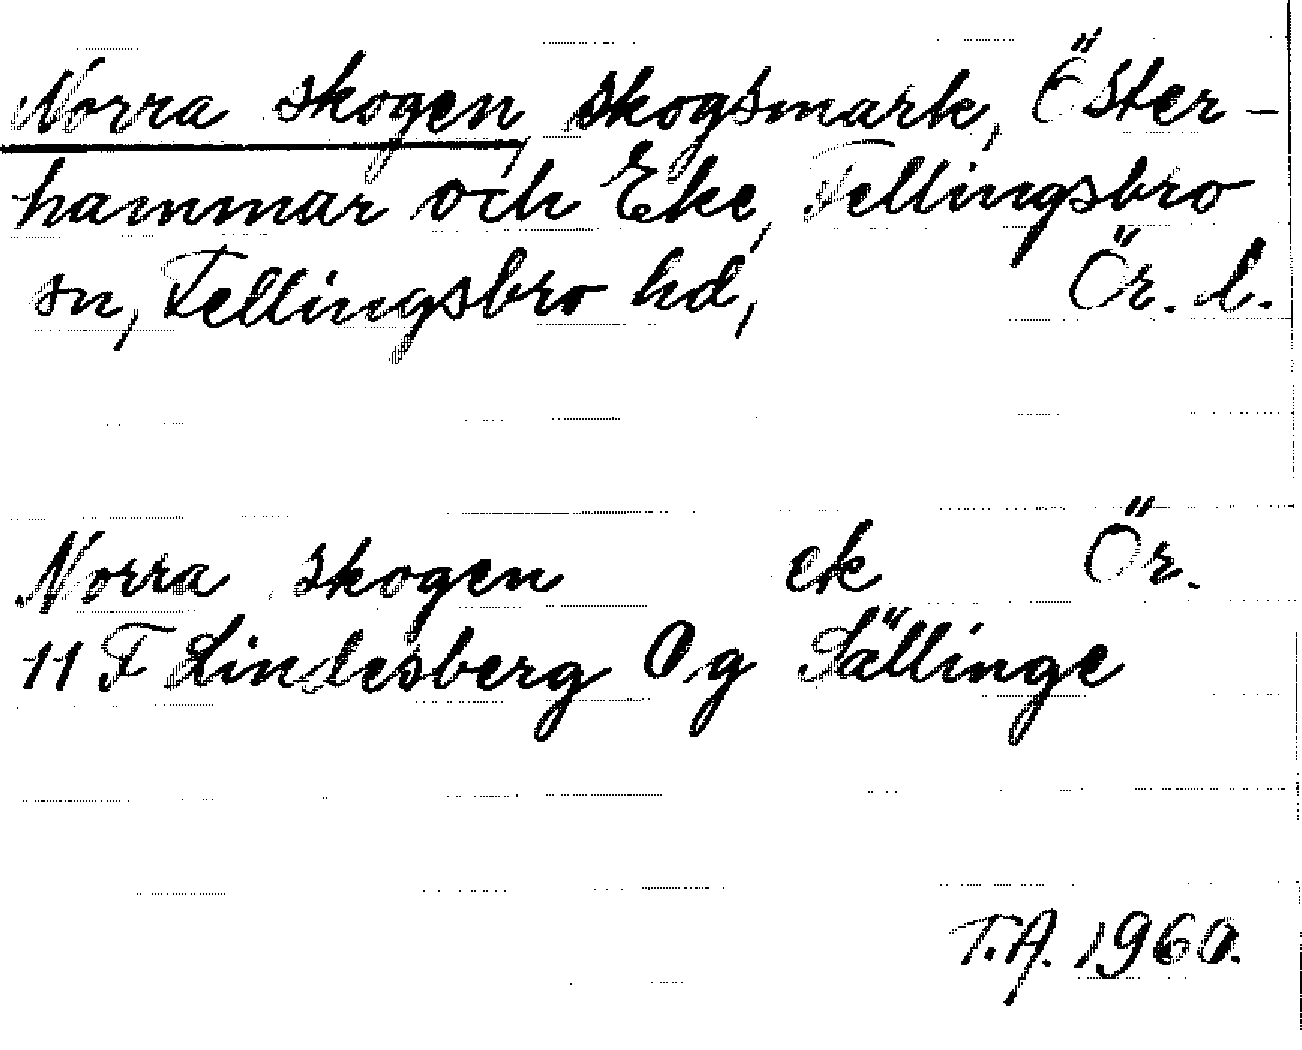 Norra skogen, skogsmark, Öster-
hammar och Eke, Fellingsbro
sn, Fellingsbro hd, Ör. l.
Norra skogen ek Ör.
11 F Lindesberg 0 g Sällinge
T.A. 1960.